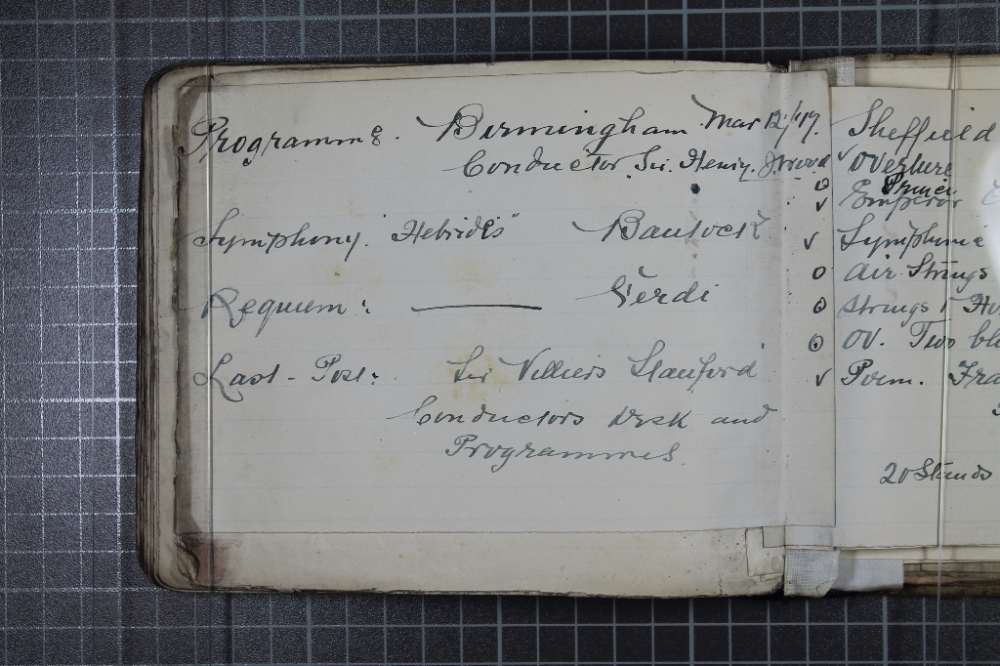 Programme. Birmingham Mar 12/17.
Conductor. Sir. Henry. J. Wood
Symphony. "Hebrides" Bantock
Requiem: Verdi
Last - Post: Sir Villiers Stanford
Conductors Desk and
Programmes.
Sheffield
✓ Overture
o Princ
✓ Emperor
✓ Symphonie
o Air Strings
o Strings &
o OV. Two
✓ Poem. Fra
20 Stands